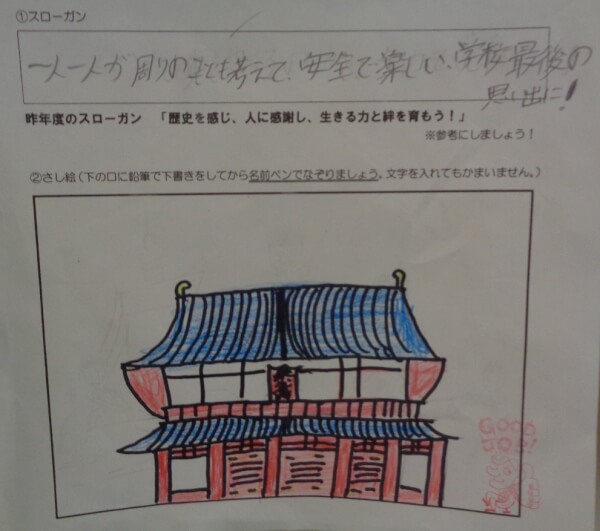 ①スローガン
一人一人が周りの事も考えて、安全で楽しい、学校最後の
思い出に!
昨年度のスローガン 「歴史を感じ、人に感謝し、生きる力と絆を育もう！」
※参考にしましょう！
②さし絵（下の口に鉛筆で下書きをしてから名前ペンでなぞりましょう。文字を入れてもかまいません。）
GOOD